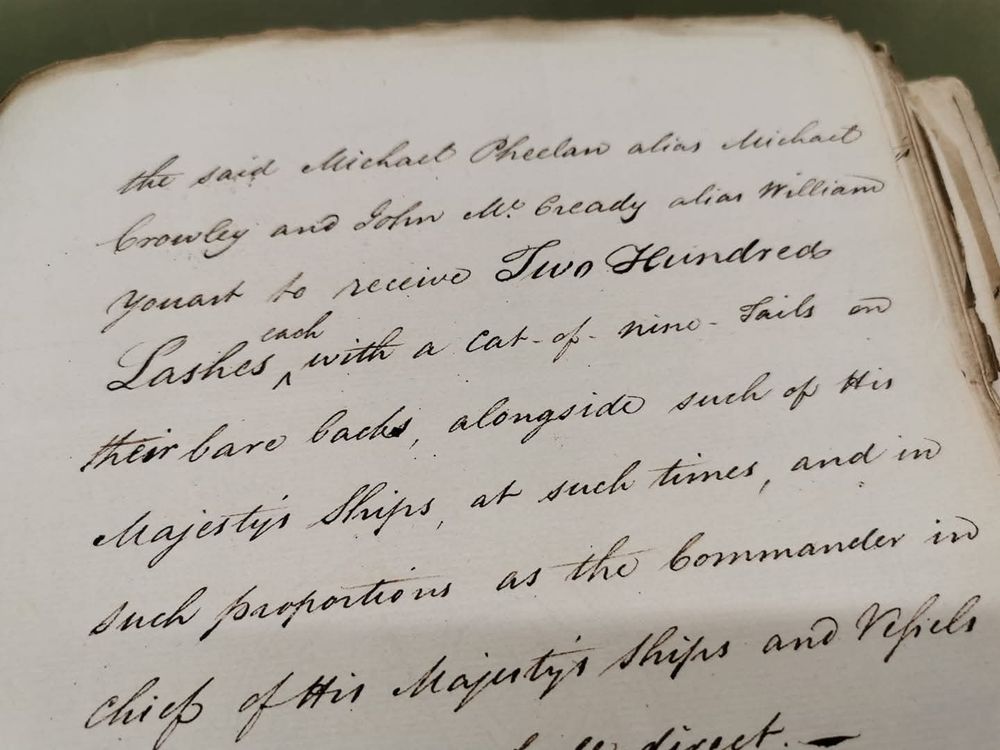 the said Michael Pheelan alias Michael
Crowley and John Mc. Cready alias William
Youart to receive Two Hundred
Lashes each with a Cat-of-nine-Tails on
their bare backs, alongside such of His
Majesty's Ships, at such times, and in
such proportions as the Commander in
Chief of His Majesty's Ships and Vessels
direct.